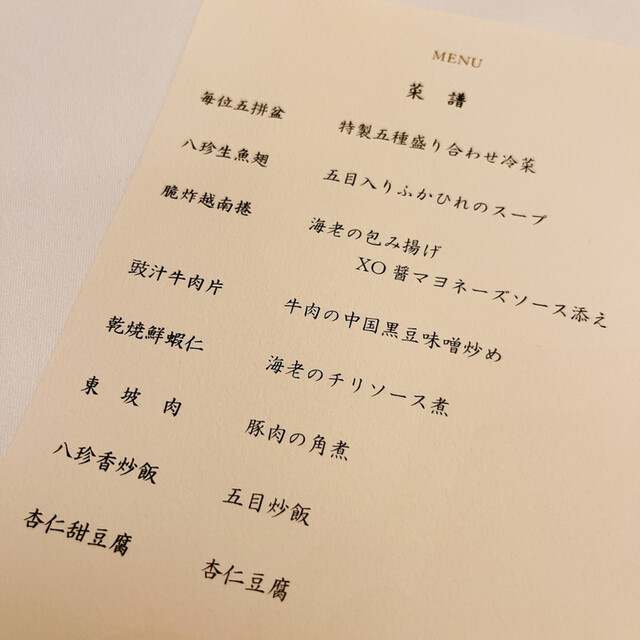 MENU
菜譜
毎位五拼盆 特製五種盛り合わせ冷菜
八珍生魚翅 五目入りふかひれのスープ
脆炸越南捲 海老の包み揚げ
XO醤マヨネーズソース添え
豉汁牛肉片 牛肉の中国黒豆味噌炒め
乾焼鮮蝦仁 海老のチリソース煮
東坡肉 豚肉の角煮
八珍香炒飯 五目炒飯
杏仁甜豆腐 杏仁豆腐